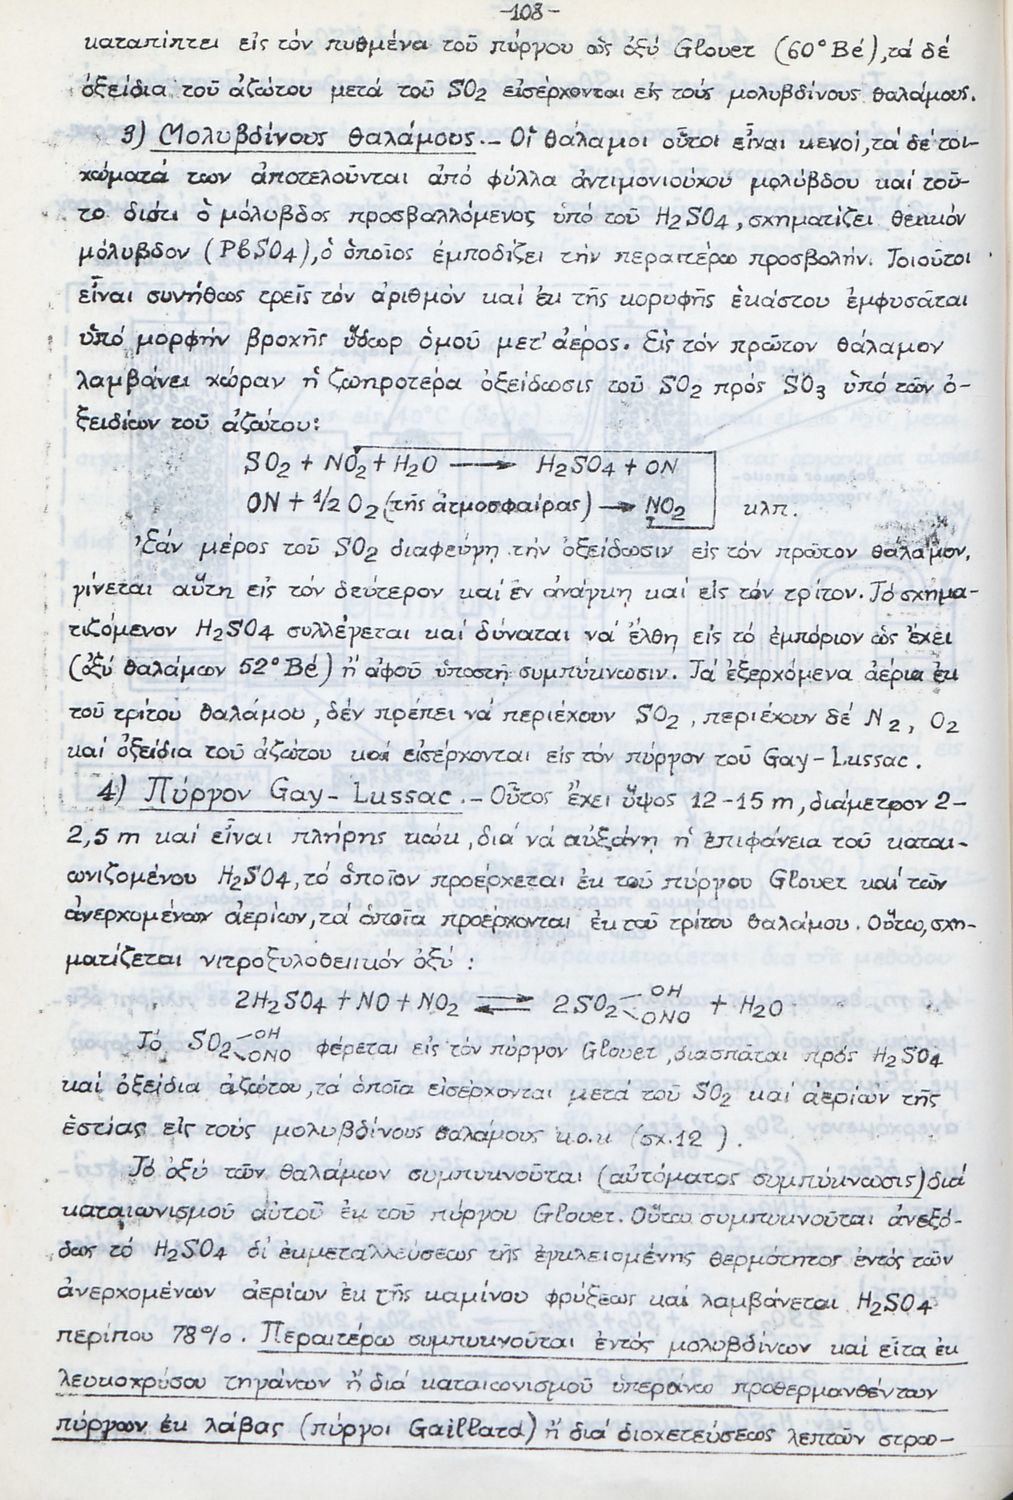 -108-
καταπίπτει εἰς τόν πυθμένα τοῦ πύργου ὡς ὀξύ Glover (60° Bé), τά δέ
ὀξείδια τοῦ ἀζώτου μετά τοῦ SO2 εἰσέρχονται εἰς τούς μολυβδίνους θαλάμους.
3) Μολυβδίνους θαλάμους.- Οἱ θάλαμοι οὗτοι εἶναι κενοί, τά δέ τοι-
χώματά των ἀποτελοῦνται ἀπό φύλλα ἀντιμονιούχου μολύβδου καί τοῦ-
το διότι ὁ μόλυβδος προσβαλλόμενος ὑπό τοῦ H2SO4, σχηματίζει θειικόν
μόλυβδον (PbSO4), ὁ ὁποῖος ἐμποδίζει τήν περαιτέρω προσβολήν. Τοιοῦτοι
εἶναι συνήθως τρεῖς τόν ἀριθμόν καί ἐκ τῆς κορυφῆς ἑκάστου ἐμφυσᾶται
ὑπό μορφήν βροχῆς ὕδωρ ὁμοῦ μετ' ἀέρος. Εἰς τόν πρῶτον θάλαμον
λαμβάνει χώραν ἡ ζωηροτέρα ὀξείδωσις τοῦ SO2 πρός SO3 ὑπό τῶν ὀ-
ξειδίων τοῦ ἀζώτου:
SO2 + NO2 + H2O → H2SO4 + ON
ON + 1/2 O2 (τῆς ἀτμοσφαίρας) → NO2 κλπ.
Ἐάν μέρος τοῦ SO2 διαφεύγῃ τήν ὀξείδωσιν εἰς τόν πρῶτον θάλαμον,
γίνεται αὕτη εἰς τόν δεύτερον καί ἐν ἀνάγκη καί εἰς τόν τρίτον. Τό σχημα-
τιζόμενον H2SO4 συλλέγεται καί δύναται νά ἔλθη εἰς τό ἐμπόριον ὡς ἔχει
(ὀξύ θαλάμων 52° Bé) ἤ ἀφοῦ ὑποστῆ συμπύκνωσιν. Τά ἐξερχόμενα ἀέρια ἐκ
τοῦ τρίτου θαλάμου, δέν πρέπει νά περιέχουν SO2, περιέχουν δέ N2, O2
καί ὀξείδια τοῦ ἀζώτου καί εἰσέρχονται εἰς τόν πύργον τοῦ Gay-Lussac.
4) Πύργον Gay-Lussac.- Οὗτος ἔχει ὕψος 12-15 m, διάμετρον 2-
2,5 m καί εἶναι πλήρης κώκ, διά νά αὐξάνη ἡ ἐπιφάνεια τοῦ καται-
ωνιζομένου H2SO4, τό ὁποῖον προέρχεται ἐκ τοῦ πύργου Glover καί τῶν
ἀνερχομένων ἀερίων, τά ὁποῖα προέρχονται ἐκ τοῦ τρίτου θαλάμου. Οὕτω, σχη-
ματίζεται νιτροξυλοθειικόν ὀξύ:
2H2SO4 + NO + NO2 ⇌ 2SO2<OH ONO + H2O
Τό SO2<OH ONO φέρεται εἰς τόν πύργον Glover, διασπᾶται πρός H2SO4
καί ὀξείδια ἀζώτου, τά ὁποῖα εἰσέρχονται μετά τοῦ SO2 καί ἀερίων τῆς
ἑστίας εἰς τούς μολυβδίνους θαλάμους κ.ο.κ (σχ.12).
Τό ὀξύ τῶν θαλάμων συμπυκνοῦται (αὐτόματος συμπύκνωσις) διά
καταιωνισμοῦ αὐτοῦ ἐκ τοῦ πύργου Glover. Οὕτω συμπυκνοῦται ἀνεξό-
δως τό H2SO4 δι' ἐκμεταλλεύσεως τῆς ἐγκλεισμένης θερμότητος ἐντός τῶν
ἀνερχομένων ἀερίων ἐκ τῆς καμίνου φρύξεως καί λαμβάνεται H2SO4
περίπου 78%. Περαιτέρω συμπυκνοῦται ἐντός μολυβδίνων καί εἶτα ἐκ
λευκοχρύσου τηγάνων ἤ διά καταιωνισμοῦ ὑπεράνω προθερμανθέντων
πύργων ἐκ λάβας (πύργοι Gaillard) ἤ διά διοχετεύσεως λεπτῶν στρω-